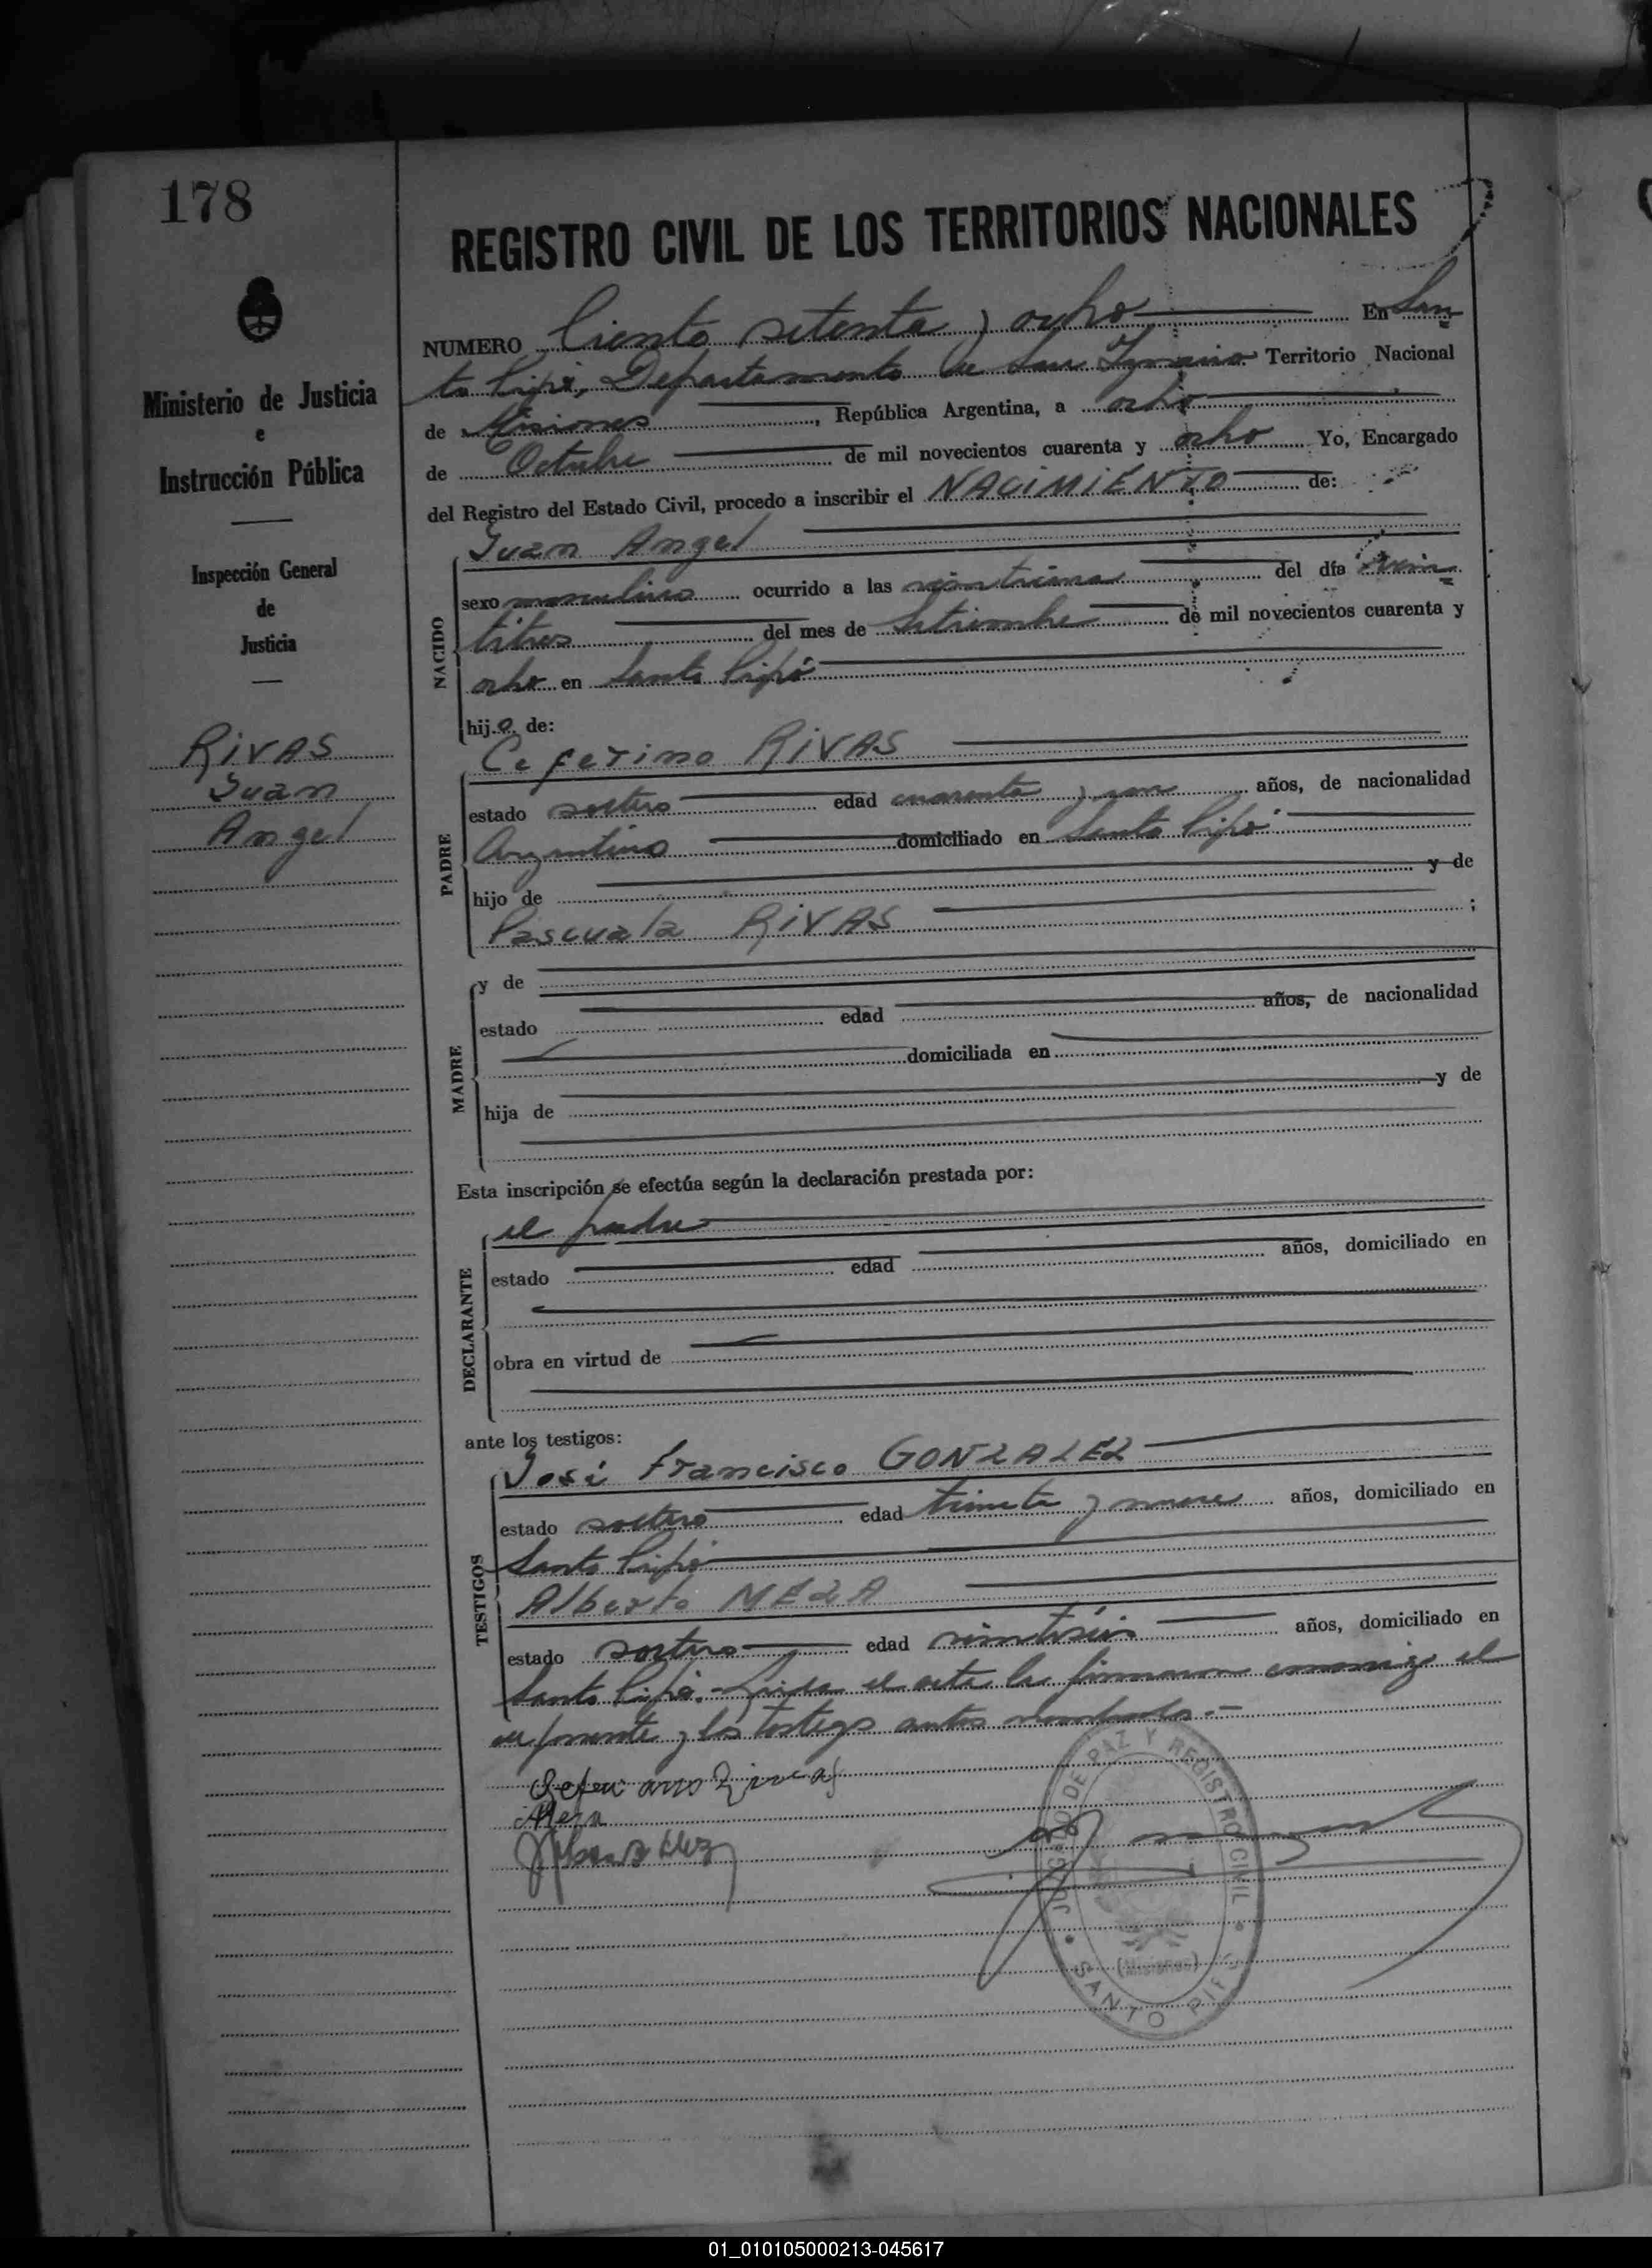 178
REGISTRO CIVIL DE LOS TERRITORIOS NACIONALES
Ministerio de Justicia
e
Instrucción Pública
Inspección General
de
Justicia
RIVAS
Juan
Angel
NUMERO Ciento setenta y ocho En San
to Pipó, Departamento de San Ignacio Territorio Nacional
de Misiones, República Argentina, a ocho
de Octubre de mil novecientos cuarenta y ocho Yo, Encargado
del Registro del Estado Civil, procedo a inscribir el NACIMIENTO de:
NACIDO
Juan Angel
sexo masculino ocurrido a las del día vein
titres del mes de Setiembre de mil novecientos cuarenta y
ocho en Santo Pipó
hijo de:
PADRE
Ceferino RIVAS
estado soltero edad cuarenta y un años, de nacionalidad
Argentino domiciliado en Santo Pipó
hijo de y de
Pascuala RIVAS ;
MADRE
y de
estado edad años, de nacionalidad
domiciliada en
hija de y de
Esta inscripción se efectúa según la declaración prestada por:
DECLARANTE
el padre
estado edad años, domiciliado en
obra en virtud de
ante los testigos:
TESTIGOS
José Francisco GONZALEZ
estado soltero edad treinta y nueve años, domiciliado en
Santo Pipó
Alberto MEZA
estado soltero edad veintiséis años, domiciliado en
Santo Pipó.- Leída el acta la firmaron conmigo el
exponente y los testigos antes nombrados.-
Meza
JUZGADO DE PAZ Y REGISTRO CIVIL
(Misiones)
SANTO PIPÓ
01_010105000213-045617